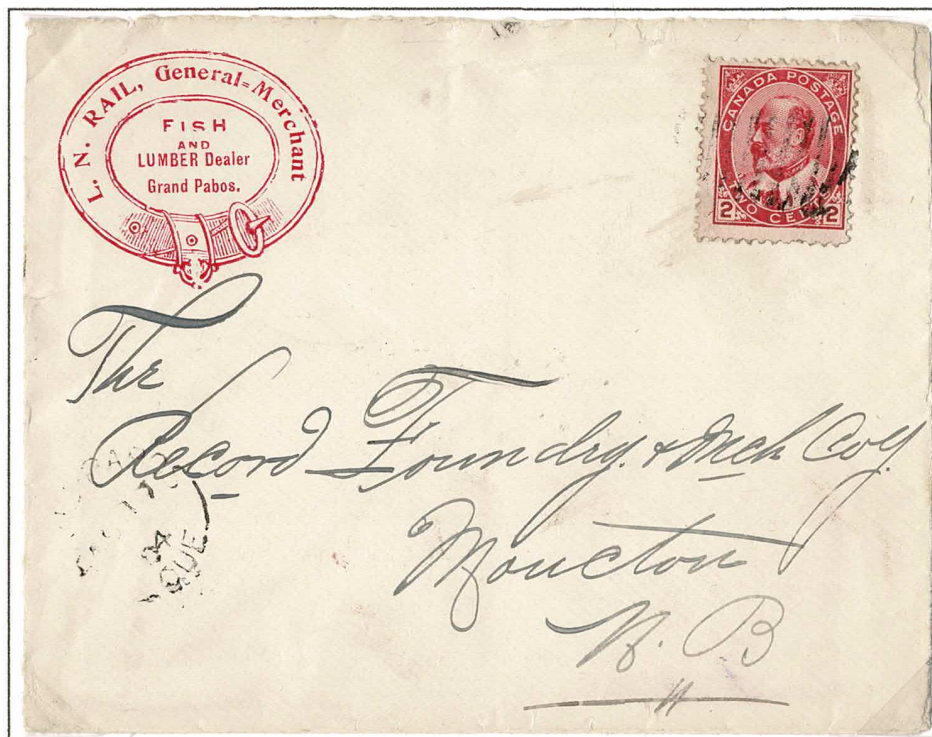 L. N. RAIL, General=Merchant
FISH
AND
LUMBER Dealer
Grand Pabos.
CANADA POSTAGE
2 TWO CENTS 2
The
Record Foundry & Mch Coy.
Moncton
N. B
04
QUE